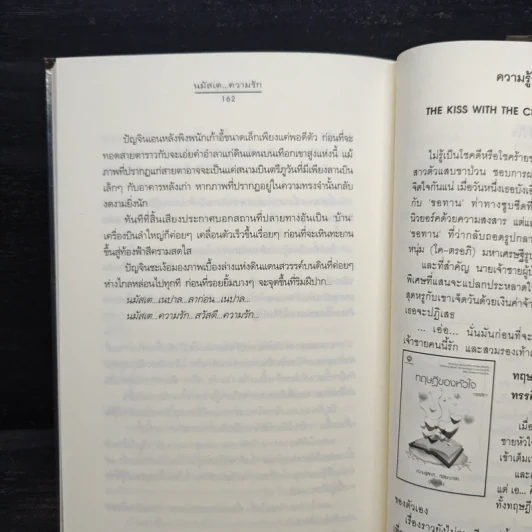 นมัสเต...ความรัก
162
ปัญจินเอนหลังพิงพนักเก้าอี้ขนาดเล็กเพียงแค่พอดีตัว ก่อนที่จะ
ทอดสายตาราวกับจะเอ่ยคำอำลาแก่ดินแดนบนเทือกเขาสูงแห่งนี้ แม้
ภาพที่ปรากฏแก่สายตาอาจจะเป็นแค่สนามบินตรีภูวันที่มีเพียงลานบิน
เล็กๆ กับอาคารหลังเก่า หากภาพที่ปรากฏอยู่ในความทรงจำนั้นกลับ
งดงามยิ่งนัก
ทันทีที่สิ้นเสียงประกาศบอกสถานที่ปลายทางอันเป็น 'บ้าน'
เครื่องบินลำใหญ่ก็ค่อยๆ เคลื่อนตัวเร็วขึ้นเรื่อยๆ ก่อนที่จะเหินทะยาน
ขึ้นสู่ท้องฟ้าสีครามสดใส
ปัญจินชะเง้อมองภาพเบื้องล่างแห่งดินแดนสวรรค์บนดินที่ค่อยๆ
ห่างไกลหล่อนไปทุกที ก่อนที่รอยยิ้มบางๆ จะจุดขึ้นที่ริมฝีปาก...
นมัสเต...เนปาล...ลาก่อน...เนปาล...
นมัสเต...ความรัก...สวัสดี...ความรัก...
ความรู้
THE KISS WITH THE
ไม่รู้เป็นโชคดีหรือโชคร้าย
สาวตัวแสบชาป่วน ชอบการ
จิตใจกันแน่ เมื่อวันหนึ่งเธอบังเอิ
กับ 'ขอทาน' ท่าทางซูบซีดที่
นิวยอร์คด้วยความสงสาร แต่
'ขอทาน' ที่ว่ากลับถอดรูปกลา
หนุ่ม (โค-ตรอภิ) มหาเศรษฐี
และที่สำคัญ นายเจ้าชาย
พิเศษที่แสนจะแปลกประหลาด
สุดหรูกับเขาเจ็ดวันด้วยเงินค่าจ้า
เธอจะปฏิเสธ
... เอ่อ... นั่นมันก่อนที่จะ
เจ้าชายคนนี้รัก และสวมรองเท้า
ทฤษฎีของหัวใจ
ทฤษ
ทรรศิ
เมื่อ
ชายหัวใ
เข้าเต็ม
และ
แต่ เอ...
ทั้งทฤษฎี
ของตัวเอง
เรื่องราวยังไม่